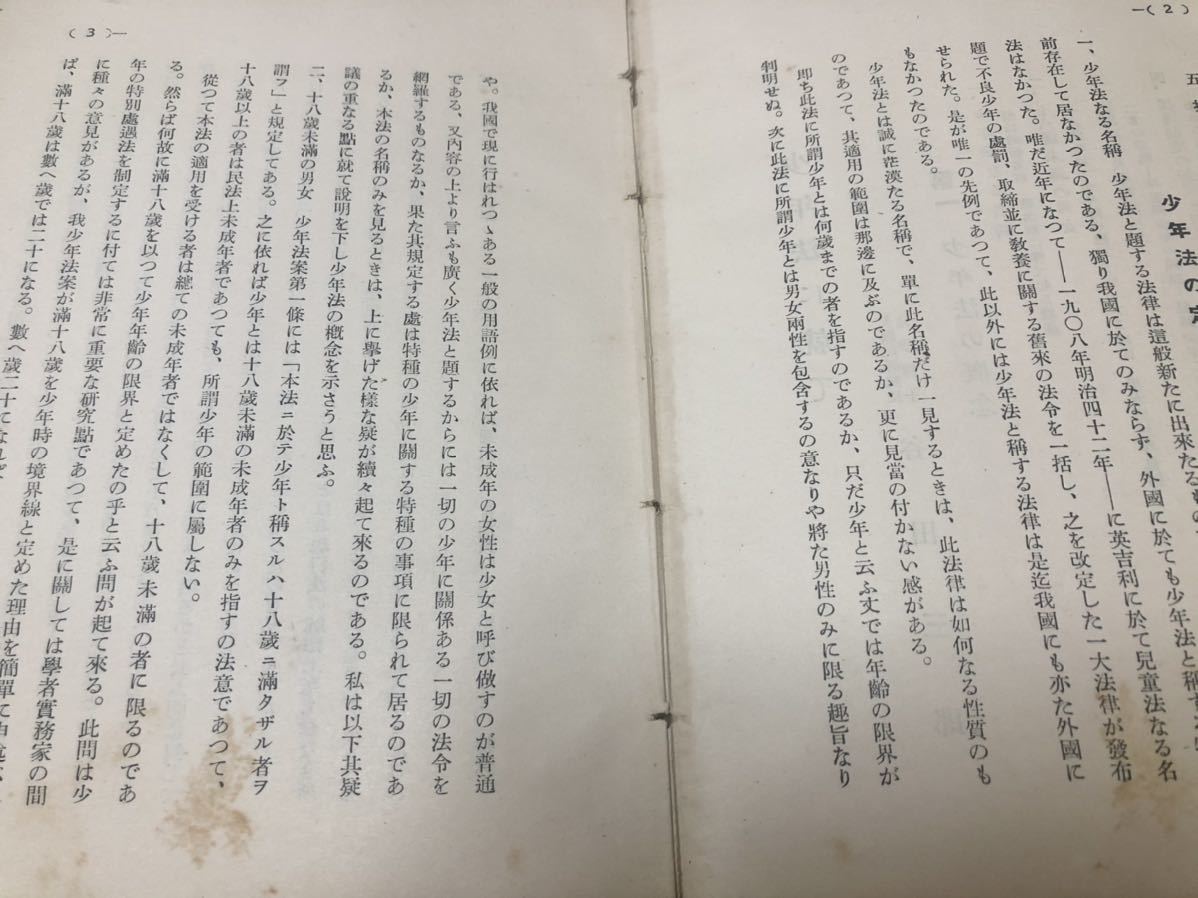 —( 2 )
少年法の定
一、少年法なる名稱　少年法と題する法律は這般新たに出來たるもの
前存在して居なかつたのである、獨り我國に於てのみならず、外國に於ても少年法と稱する
法はなかつた。唯だ近年になつて——一九〇八年明治四十二年——に英吉利に於て兒童法なる名
題で不良少年の處罰、取締並に敎養に關する舊來の法令を一括し、之を改定した一大法律が發布
せられた。是が唯一の先例であつて、此以外には少年法と稱する法律は是迄我國にも亦た外國に
もなかつたのである。
少年法とは誠に茫漠たる名稱で、單に此名稱だけ一見するときは、此法律は如何なる性質のも
のであつて、其適用の範圍は那邊に及ぶのであるか、更に見當の付かない感がある。
卽ち此法に所謂少年とは何歲までの者を指すのであるか、只だ少年と云ふ丈では年齡の限界が
判明せぬ。次に此法に所謂少年とは男女兩性を包含するの意なりや將た男性のみに限る趣旨なり
( 3 )—
や。我國で現に行はれつゝある一般の用語例に依れば、未成年の女性は少女と呼び做すのが普通
である、又內容の上より言ふも廣く少年法と題するからには一切の少年に關係ある一切の法令を
網羅するものなるか、果た其規定する處は特種の少年に關する特種の事項に限られて居るのであ
るか、本法の名稱のみを見るときは、上に擧げた樣な疑が續々起て來るのである。私は以下其疑
議の重なる點に就て說明を下し少年法の槪念を示さうと思ふ。
二、十八歲未滿の男女　少年法案第一條には「本法ニ於テ少年ト稱スルハ十八歲ニ滿タザル者ヲ
謂フ」と規定してある。之に依れば少年とは十八歲未滿の未成年者のみを指すの法意であつて、
十八歲以上の者は民法上未成年者であつても、所謂少年の範圍に屬しない。
從つて本法の適用を受ける者は總ての未成年者ではなくして、十八歲未滿の者に限るのであ
る。然らば何故に滿十八歲を以つて少年年齡の限界と定めたの乎と云ふ問が起て來る。此問は少
年の特別處遇法を制定するに付ては非常に重要な硏究點であつて、是に關しては學者實務家の間
に種々の意見があるが、我少年法案が滿十八歲を少年時の境界線と定めた理由を簡單に
ば、滿十八歲は數へ歲では二十になる。數へ歲二十になれば